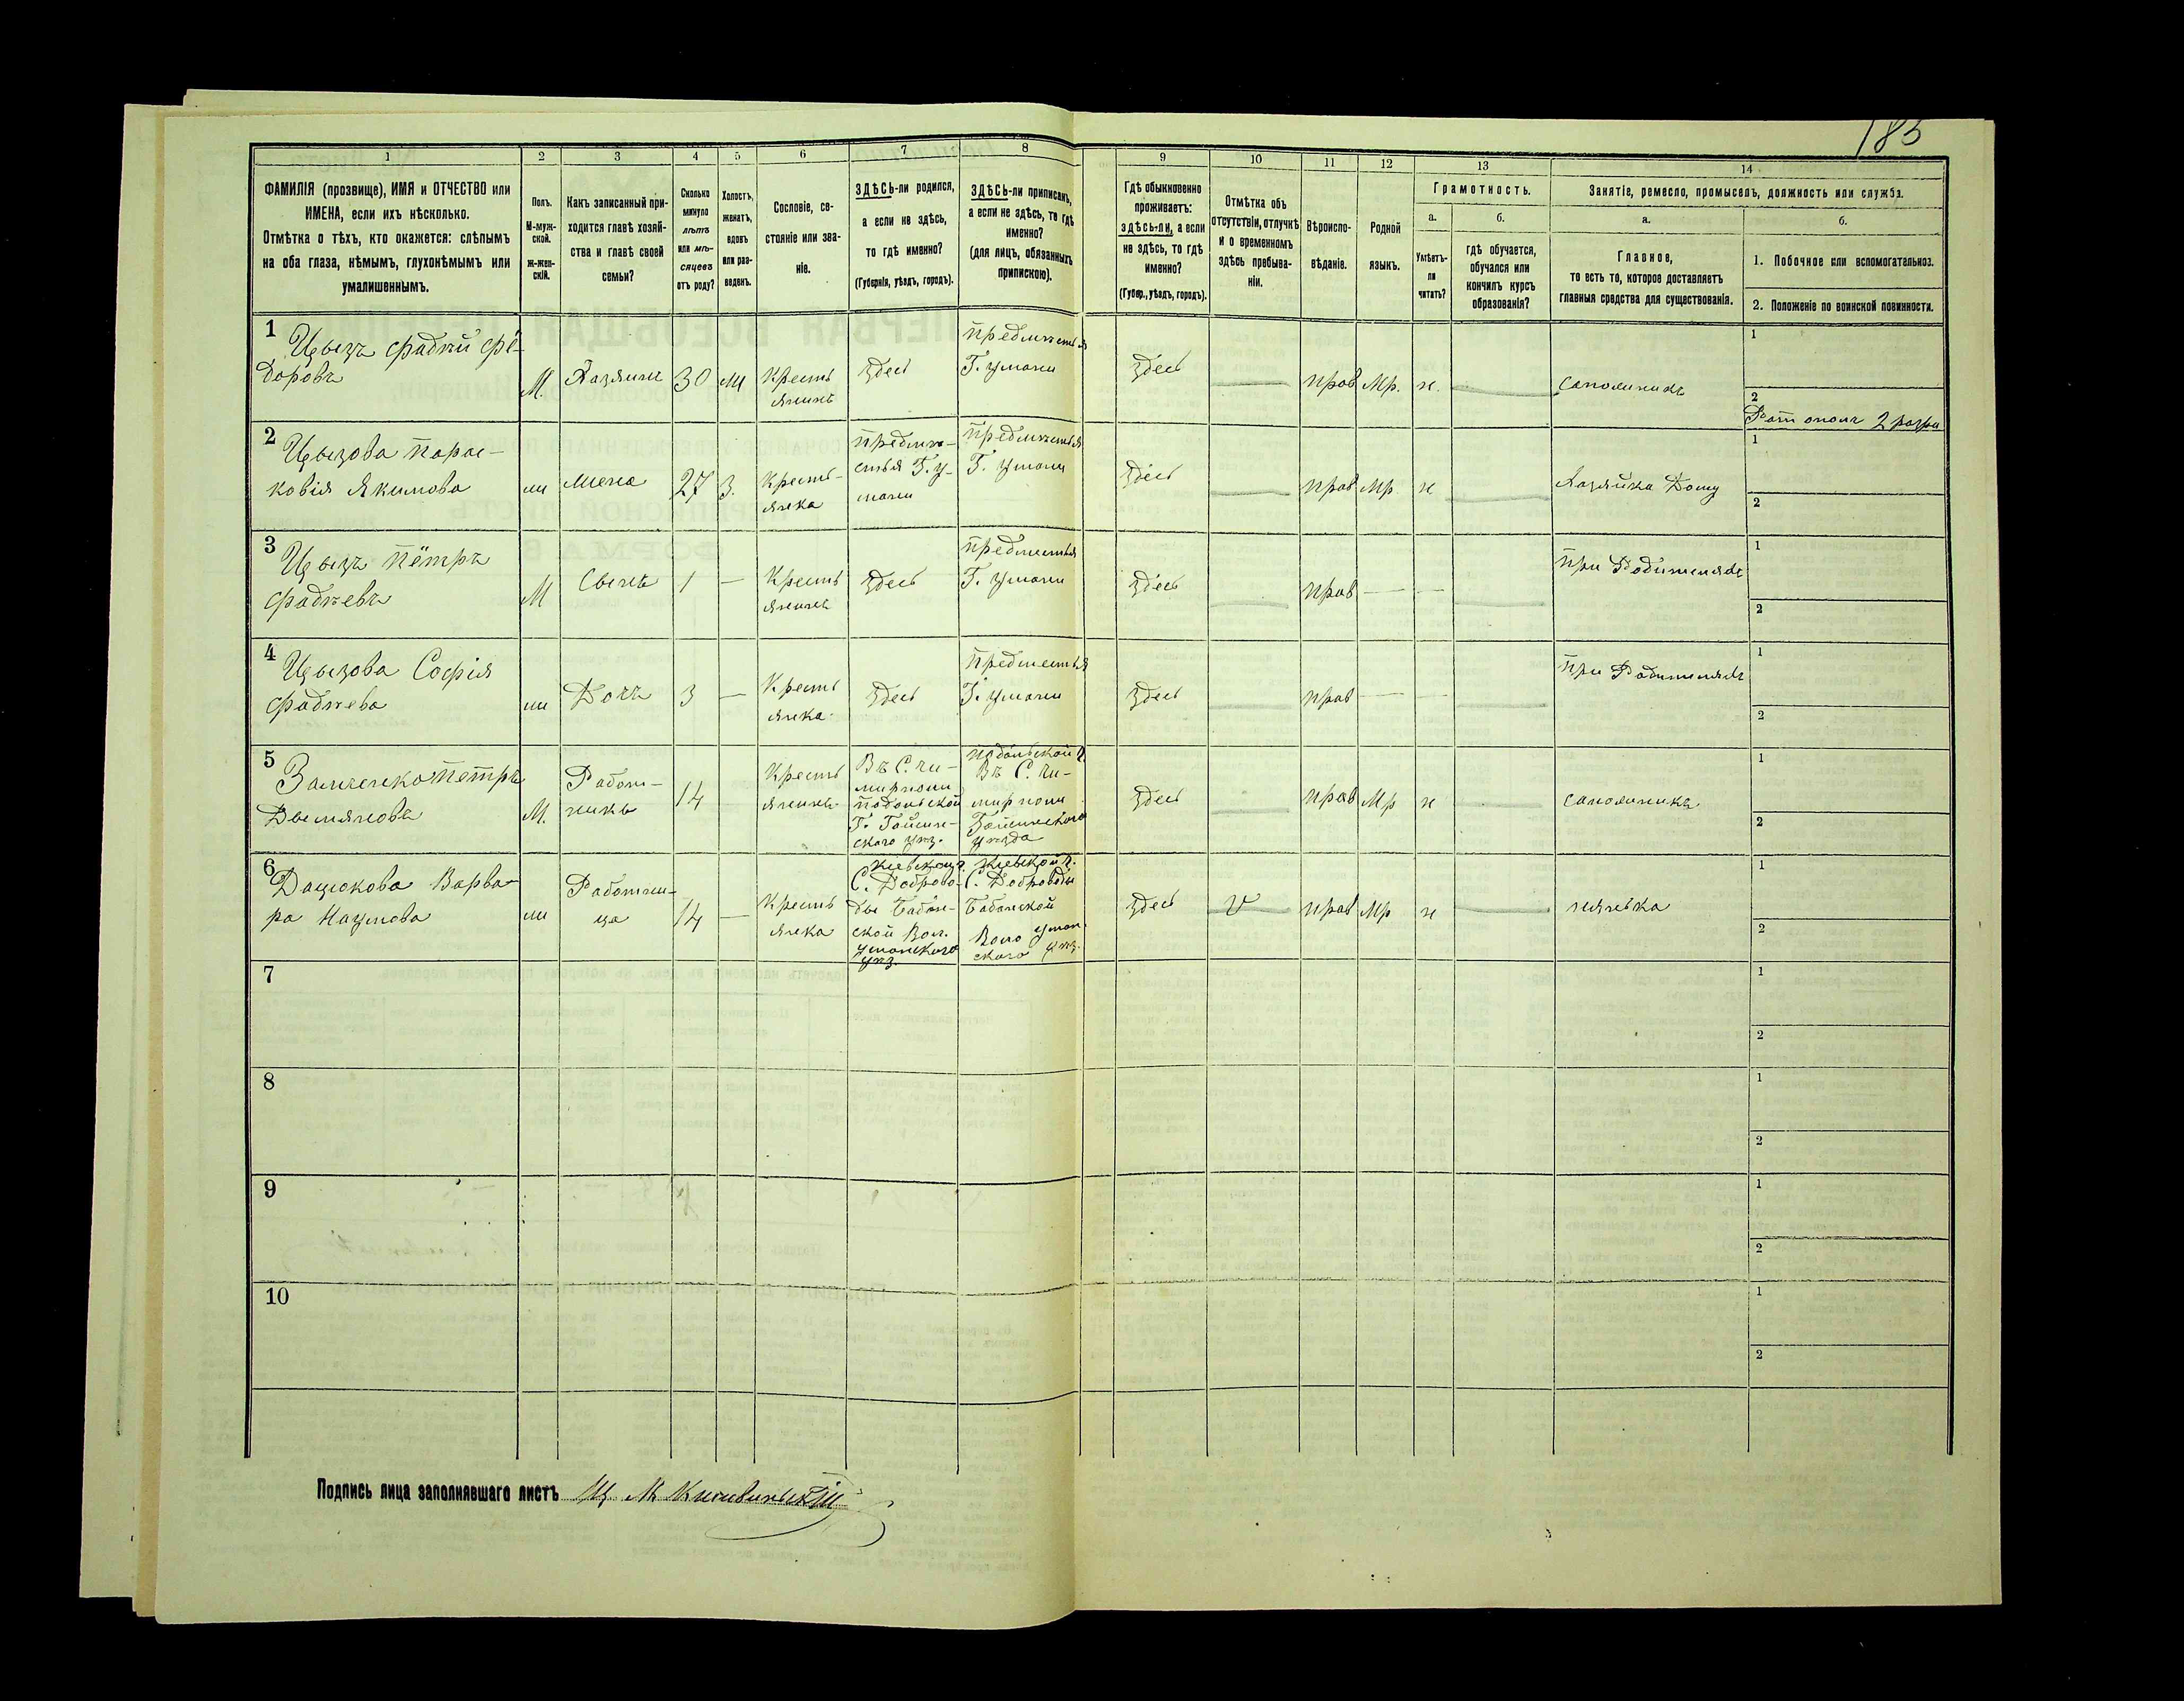 185
1 2 3 4 5 6 7 8 9 10 11 12 13 14
ФАМИЛІЯ (прозвище), ИМЯ и ОТЧЕСТВО или
ИМЕНА, если ихъ нѣсколько.
Отмѣтка о тѣхъ, кто окажется: слѣпымъ
на оба глаза, нѣмымъ, глухонѣмымъ или
умалишеннымъ.
Полъ.
М-муж-
ской.
ж-жен-
скій.
Какъ записанный при-
ходится главѣ хозяй-
ства и главѣ своей
семьи?
Сколько
минуло
лѣтъ
или мѣ-
сяцевъ
отъ роду?
Холостъ,
женатъ,
вдовъ
или раз-
веденъ.
Сословіе, со-
стояніе или зва-
ніе.
ЗДѢСЬ-ли родился,
а если не здѣсь,
то гдѣ именно?
(Губернія, уѣздъ, городъ).
ЗДѢСЬ-ли приписанъ,
а если не здѣсь, то гдѣ
именно?
(для лицъ, обязанныхъ
припискою).
Гдѣ обыкновенно
проживаетъ:
здѣсь-ли, а если
не здѣсь, то гдѣ
именно?
(Губер., уѣздъ, городъ).
Отмѣтка объ
отсутствіи, отлучкѣ
и о временномъ
здѣсь пребыва-
ніи.
Вѣроиспо-
вѣданіе.
Родной
языкъ.
Грамотность.
а.
Умѣетъ-
ли
читать?
б.
гдѣ обучается,
обучался или
кончилъ курсъ
образованія?
Занятіе, ремесло, промыселъ, должность или служба.
а.
Главное,
то есть то, которое доставляетъ
главныя средства для существованія.
б.
1. Побочное или вспомогательное.
2. Положеніе по воинской повинности.
1 Цвызъ Фадѣй Фё-
доровъ
М. Хазяинъ 30 ж Кресть
янинъ
здесь
предмѣстья
Г. Умани
здесь — прав Мр. н. — сапожникъ
1
2
Рат ополч 2 разря
2 Цвызова Парас-
ковія Якимова
ж жена 27 З. Кресть-
янка
предмѣ-
стья Г. У-
мани
предмѣстья
Г. Умани
здесь — прав Мр н — Хазяйка Дому
1
2
3 Цвызъ Пётръ
Фадѣевъ
М Сынъ 1 — Кресть
янинъ
здесь
предместья
Г. Умани
здесь — прав — — — при Родителяхъ
1
2
4 Цвызова Софія
Фадѣева
ж Дочъ 3 — Кресть
янка
здесь
предместья
Г. Умани
здесь — прав — — — при Родителяхъ
1
2
5
Пётръ
Демяновъ
М. Работ-
никъ
14
Кресть
янинъ
Въ С.
Подольской
Г. Гайсин-
ского уѣз.
Подольской г.
Въ С.
Гайсинского
уѣзда
здесь — прав Мр н — сапожникъ
1
2
6
Дацюкова Варва-
ра Наумова
ж Работни-
ца
14 — Кресть
янка
Кіевской г.
С. Доброво-
ды Бабан-
ской Вол.
Уманского
уѣз.
Кіевской г.
С. Доброводы
Бабанской
Воло Уман-
ского уѣз.
здесь V прав Мр н — нянька
1
2
7
1
2
8
1
2
9
1
2
10
1
2
Подпись лица заполнявшаго листъ